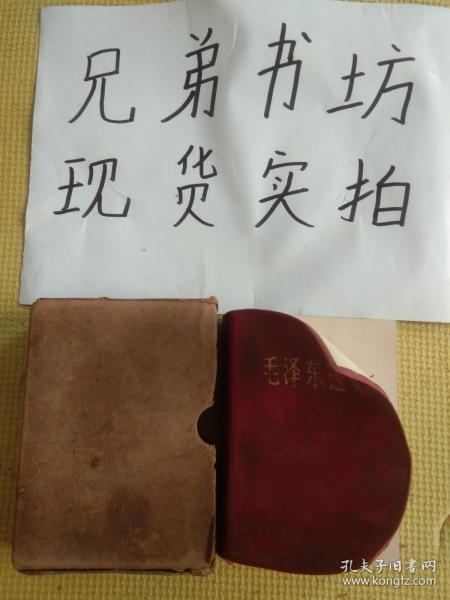 兄弟书坊
现货实拍
毛泽东选
孔夫子旧书网
www.kongfz.com